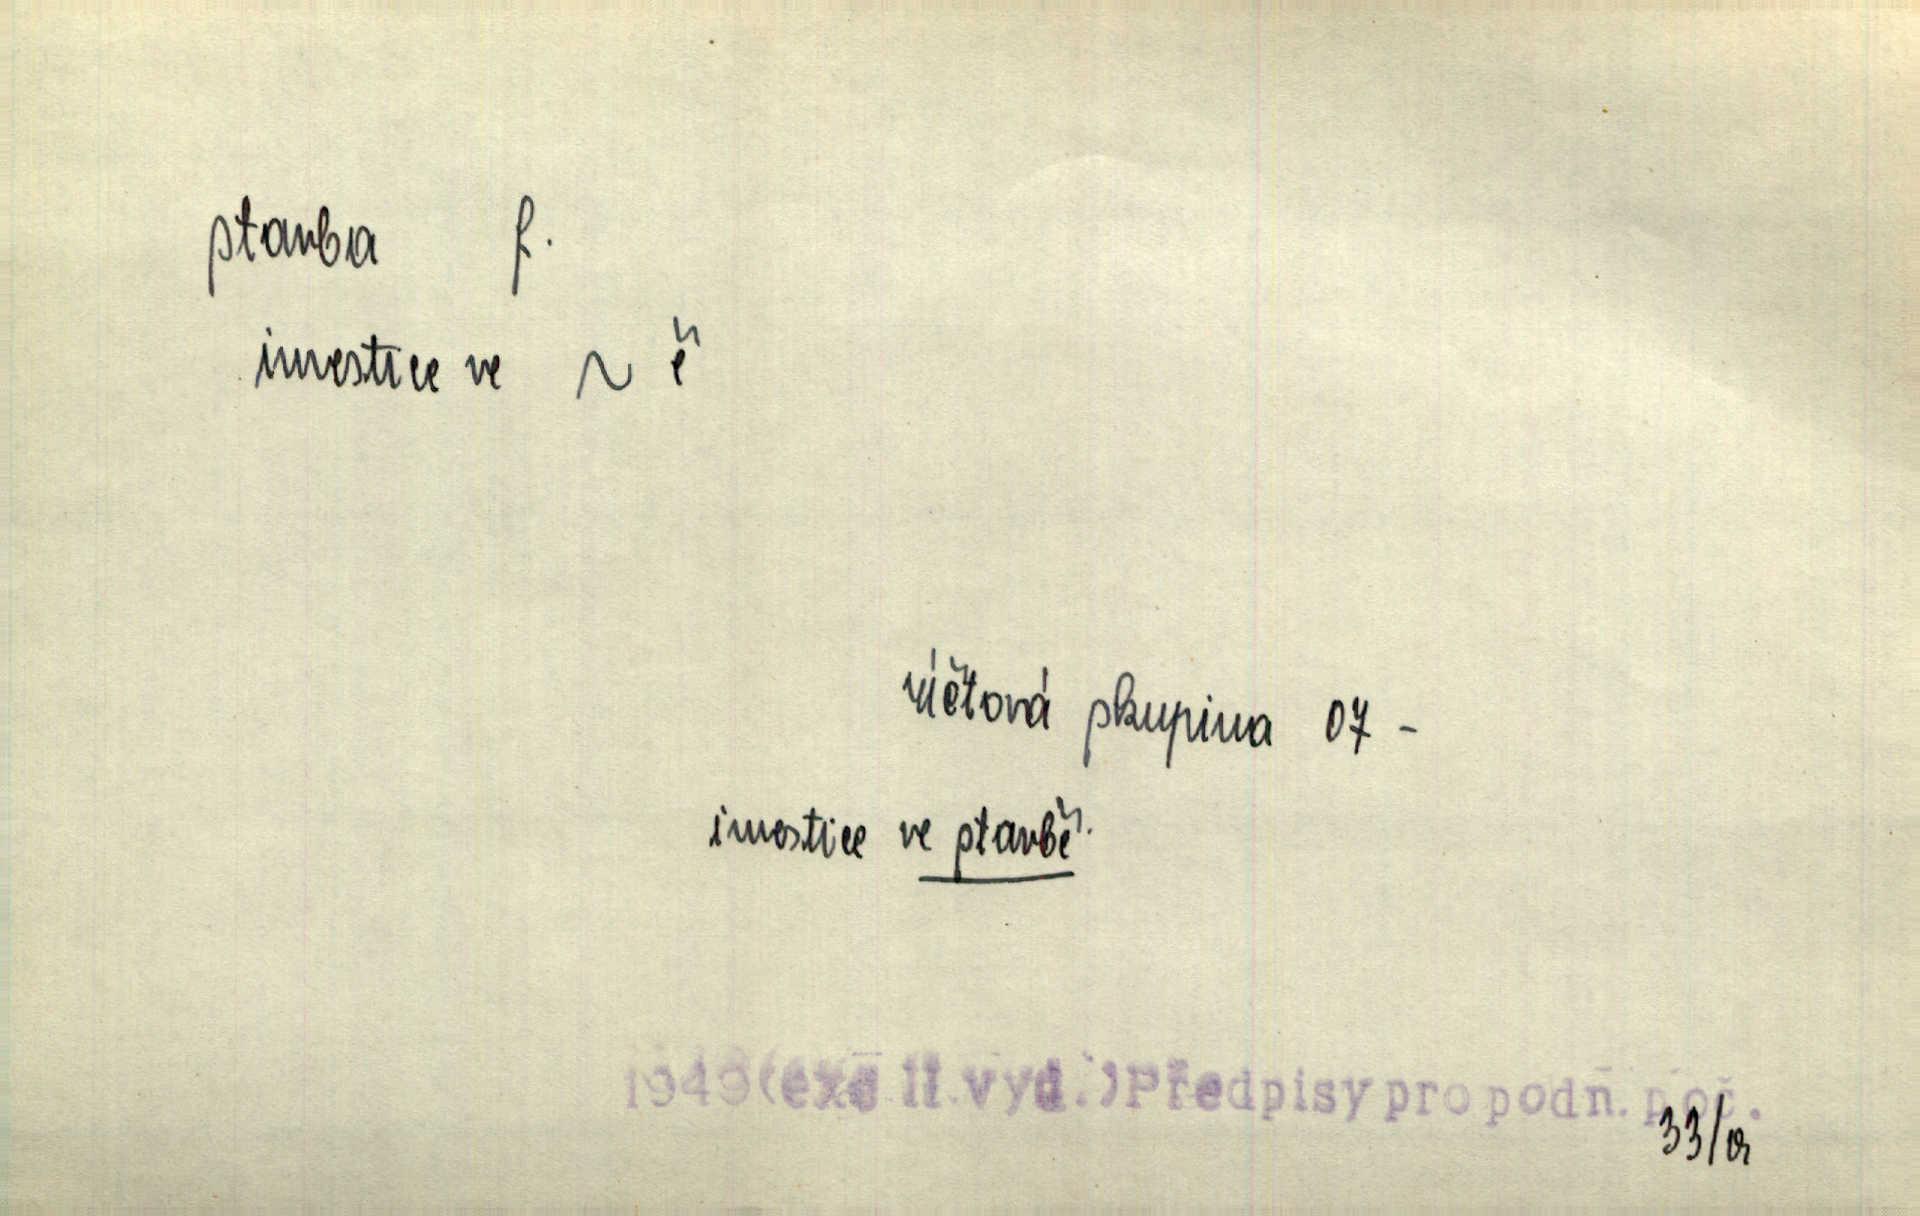 stavba f.
investice ve ~ ě
účtová skupina 07 -
investice ve stavbě.
1949(exc II.vyd.)Předpisy pro podn. poč.
33/a